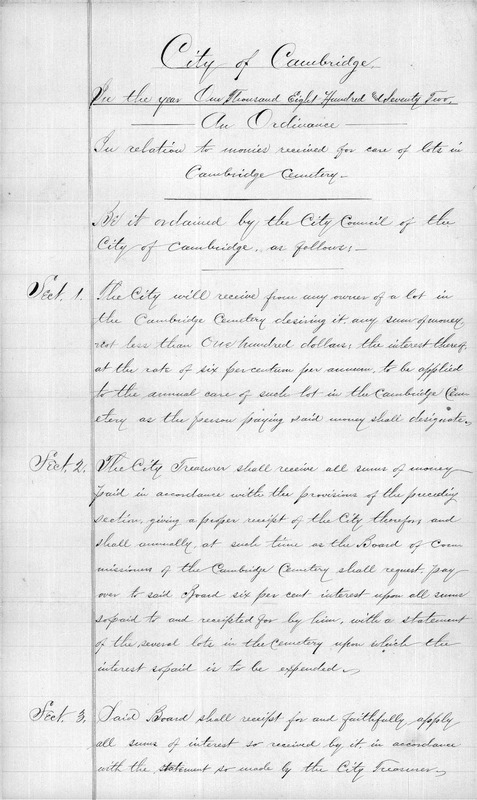 City of Cambridge.
In the year One Thousand Eight Hundred & Seventy Two,
An Ordinance
In relation to monies received for care of lots in
Cambridge Cemetery.
Be it ordained by the City Council of the
City of Cambridge, as follows:
Sect. 1. The City will receive from any owner of a lot in
the Cambridge Cemetery desiring it, any sum of money,
not less than One hundred dollars; the interest thereof,
at the rate of six per centum per annum, to be applied
to the annual care of such lot in the Cambridge Cem-
etery as the person paying said money shall designate.
Sect. 2. The City Treasurer shall receive all sums of money
paid in accordance with the provisions of the preceding
section, giving a proper receipt of the City therefor, and
shall annually, at such time as the Board of Com-
missioners of the Cambridge Cemetery shall request, pay
over to said Board six per cent interest upon all sums
so paid to and receipted for by him, with a statement
of the several lots in the Cemetery upon which the
interest so paid is to be expended.
Sect. 3. Said Board shall receipt for and faithfully apply
all sums of interest so received by it, in accordance
with the statement so made by the City Treasurer.